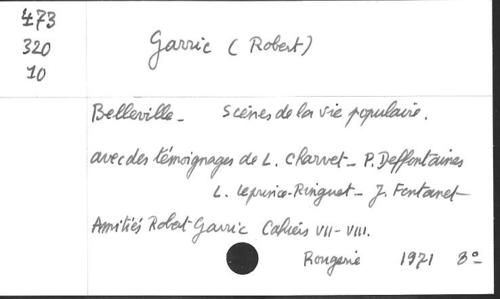 473
320
10
Garric (Robert)
Belleville - Scènes de la vie populaire.
avec des témoignages de L. Charvet - P. Deffontaines
L. Leprince-Ringuet - J. Fontanet
Amitiés Robert Garric Cahiers VII - VIII.
Rougerie 1971 8°